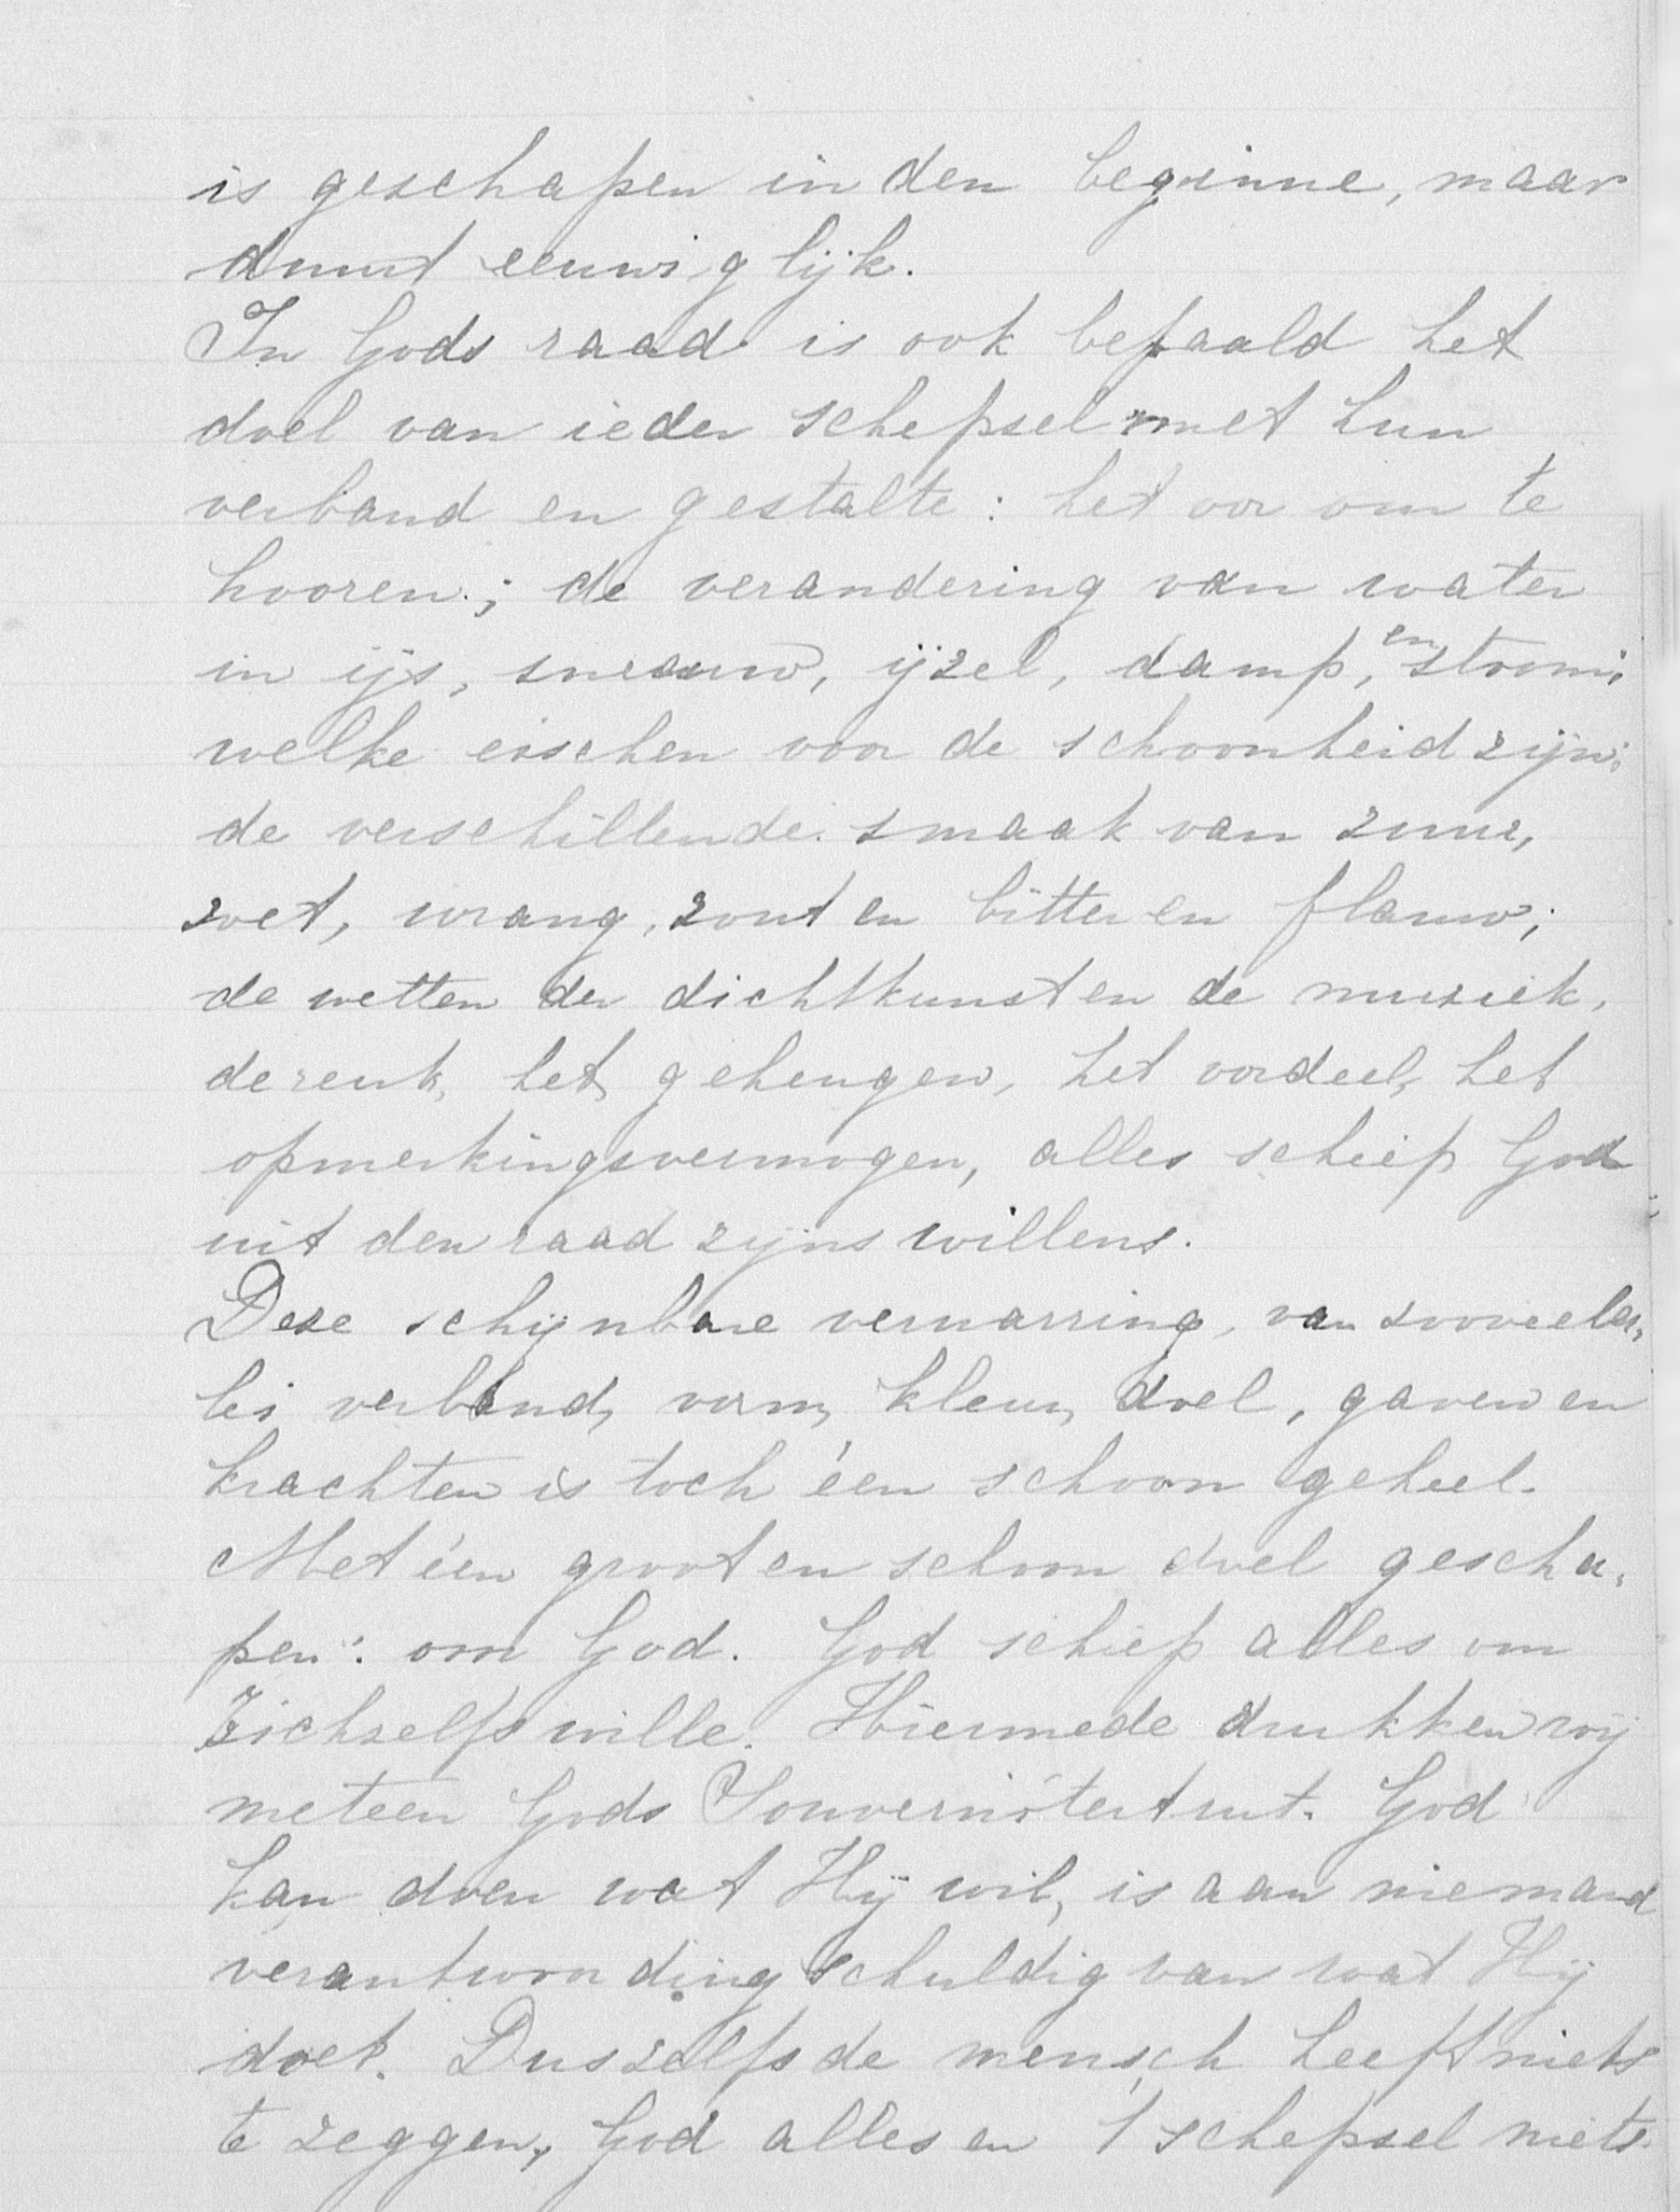 is geschapen in den beginne, maar
duurt eeuwiglijk.
In Gods raad is ook bepaald het
doel van ieder schepsel met hun
verband en gestalte: het oor om te
hooren; de verandering van water
in ijs, sneeuw, ijzel, damp, en stoom;
welke eischen voor de schoonheid zijn;
de verschillende smaak van zuur,
zoet, wrang, zout en bitter en flauw;
de wetten der dichtkunst en de muziek,
de reuk, het geheugen, het oordeel, het
opmerkingsvermogen, alles schiep God
uit den raad zijns willens.
Deze schijnbare verwarring, van zooveeler,
lei verband, vorm, kleur, doel, gaven en
krachten is toch één schoon geheel.
Met één groot en schoon doel gescha,
pen: om God. God schiep alles om
Zichzelfs wille. Hiermede drukken wij
meteen Gods Souvereiniteit uit. God
kan doen wat Hij wil, is aan niemand
verantwoording schuldig van wat Hij
doet. Dus zelfs de mensch heeft niets
te zeggen, God alles en 't schepsel niets.